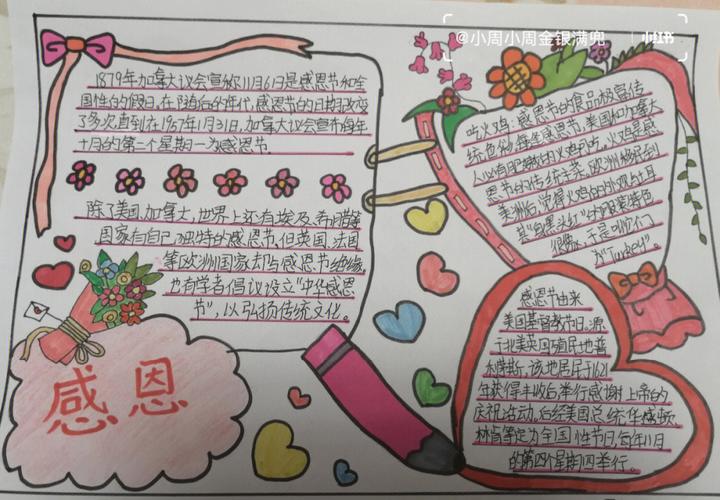 @小周小周金银满兜
小红书
1879年加拿大议会宣称11月6日是感恩节和全
国性的假日,在随后的年代,感恩节的日期改变
了多次,直到在1957年1月31日,加拿大议会宣布每年
十月的第二个星期一为感恩节。
除了美国,加拿大,世界上还有埃及、希腊等
国家有自己独特的感恩节,但英国,法国
等欧洲国家却与感恩节绝缘,
也有学者倡议设立"中华感恩
节",以弘扬传统文化。
感恩
吃火鸡:感恩节的食品极富传
统色彩,每逢感恩节,美国和加拿大
人必有肥嫩的火鸡可吃,火鸡是感
恩节的传统主菜,
感恩节由来
美国基督教节日,源
于北美英国殖民地普
利特斯,该地居民于1621
年获得丰收后,举行感谢上帝的
庆祝活动,后经美国总统华盛顿、
林肯等定为全国性节日,每年11月
的第四个星期四举行。